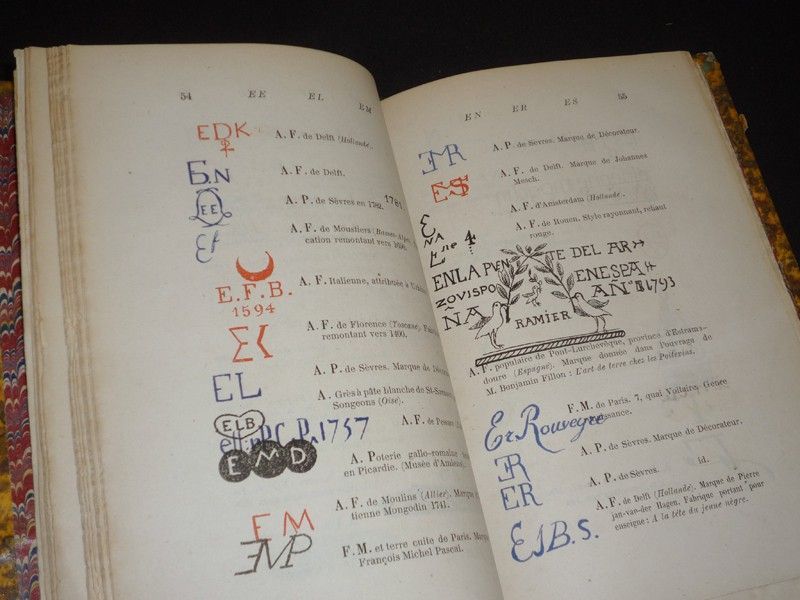 54 EE EL EM
EDK
A. F. de Delft (Hollande.
E.N
A. F. de Delft.
EE
A. P. de Sèvres en 1782. 1781
A. F. de Moustiers (Basses-
cation remontant vers
E.F.B.
1594
A. F. Italienne, attribuée à
A. F. de Florence (Toscane)
remontant vers 1400.
EL
A. P. de Sèvres. Marque de
A. Grès à pâte blanche de
Songeons (Oise).
ELB
1757
A. F. de
EMD
A. Poterie gallo-romaine
en Picardie. (Musée d'Amiens)
EM
A. F. de Moulins (Allier). Marque
tienne Mongodin 1741.
EMP
F. M. et terre cuite de Paris.
François Michel Pascal.
EN ER ES 55
ER
A. P. de Sèvres. Marque de Décorateur.
ES
A. F. de Delft. Marque de Johannes
Mesch.
E
NA
A. F. d'Amsterdam (Hollande).
A. F. de Rouen. Style rayonnant, reliant
rouge.
ENLA PUN TE DEL AR
ZOVISPO EN ESPA
ÑA RAMIER AÑ 1793
A. F. populaire de Pont-Lurchevêque, province d'Estrama-
doure (Espagne). Marque donnée dans l'ouvrage de
M. Benjamin Fillon : L'art de terre chez les Poitevins.
Er Rouveyre
F. M. de Paris. 7, quai Voltaire, Genre
Renaissance.
ER
A. P. de Sèvres. Marque de Décorateur.
ER
A. P. de Sèvres. id.
EIB.S.
A. F. de Delft (Hollande). Marque de Pierre
jan-van-der Hagen. Fabrique portant pour
enseigne : A la tête du jeune nègre.